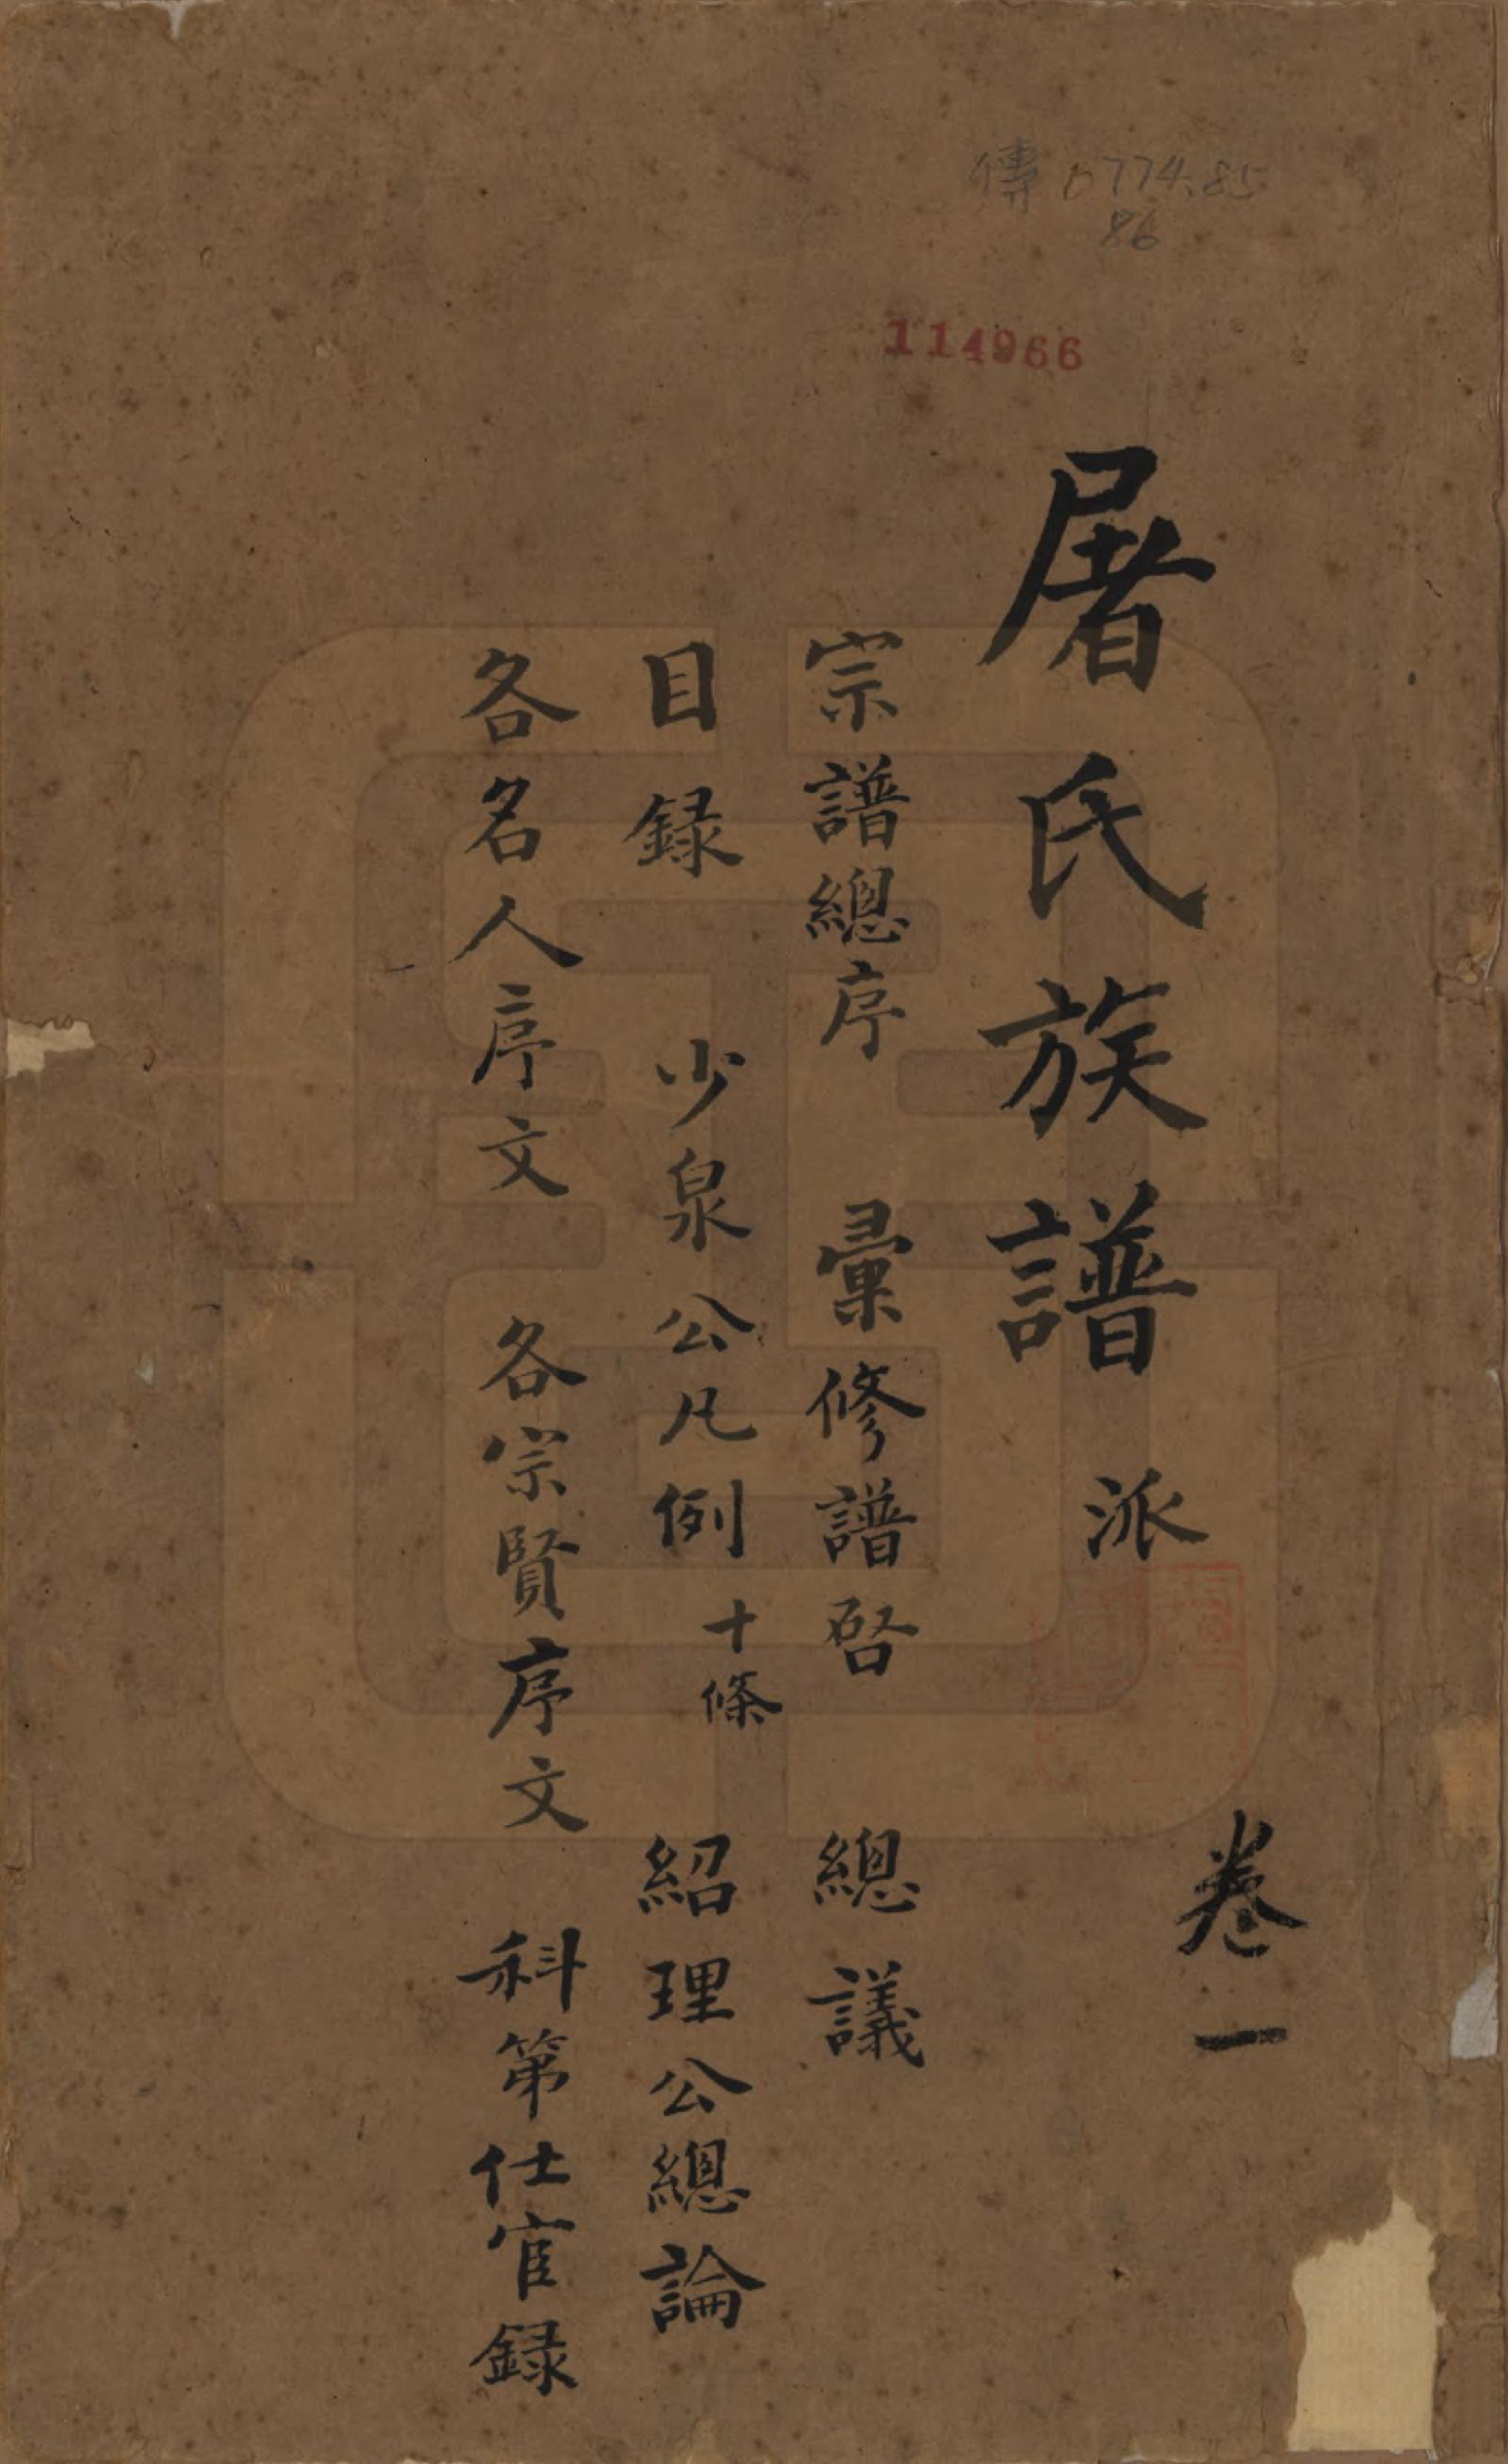 傳 6774.85
86
114966
卷一
屠氏族譜 派
宗譜總序 彙修譜啓 總議
目錄 少泉公凡例十條 紹理公總論
各名人序文 各宗賢序文 科第仕宦録